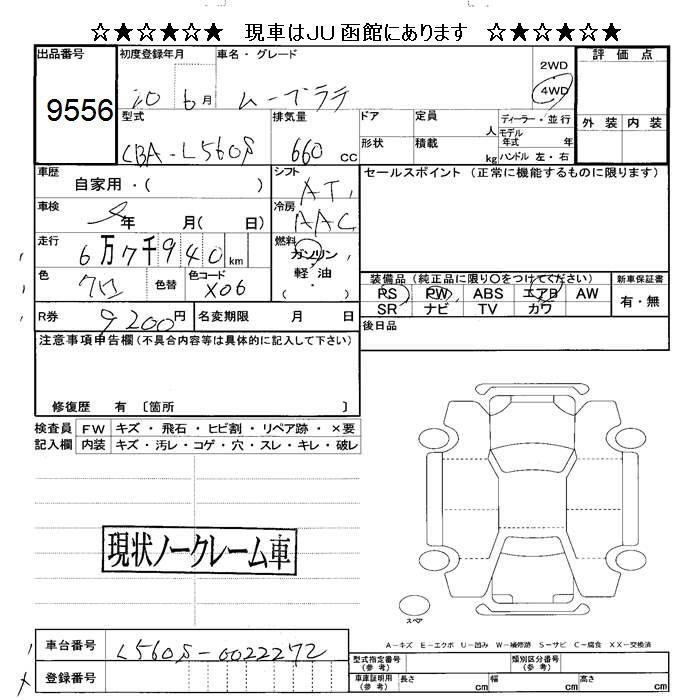 ☆★☆★☆★ 現車はJU函館にあります ☆★☆★☆★
出品番号 初度登録年月 車名・グレード 評価点
9556 20 6月 ムーブラテ 2WD 4WD
型式 排気量 ドア 定員 人 ディーラー・並行 外装 内装
CBA-L560S 660 CC 形状 積載 kg モデル年式 年
ハンドル 左・右
車歴 自家用・( ) シフト AT セールスポイント (正常に機能するものに限ります)
車検 年 月( 日) 冷房 AAC
走行 6万7千940km 燃料 ガソリン 軽・油 ( )
色 クロ 色替 色コード X06
装備品 (純正品に限り○をつけてください) 新車保証書
PS PW ABS エアB AW 有・無
SR ナビ TV カワ
R券 9200円 名変期限 月 日 後日品
注意事項申告欄(不具合内容等は具体的に記入して下さい)
修復歴 有 〔箇所 〕
検査員 FW キズ・飛石・ヒビ割・リペア跡・×要
記入欄 内装 キズ・汚レ・コゲ・穴・スレ・キレ・破レ
現状ノークレーム車
スペア
A-キズ E-エクボ U-凹み W-補修跡 S-サビ C-腐食 XX-交換済
車台番号 L560S-0022272
型式指定番号(参考) 類別区分番号(参考)
登録番号 車庫証明用(参考) 長さ cm 幅 cm 高さ cm